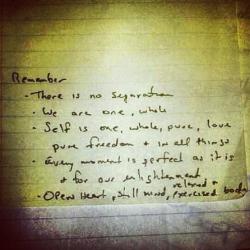 Remember
- There is no separation
- We are one, whole
- Self is one, whole, pure, love
pure freedom + in all things
- Every moment is perfect as it is
+ for our enlightenment
- Open Heart, still mind, relaxed + exercised body